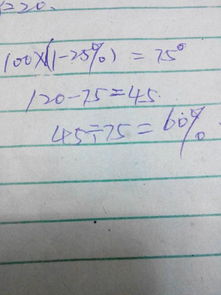 =20.
100×(1-25%)=75°
120-75=45.
45÷75=60%